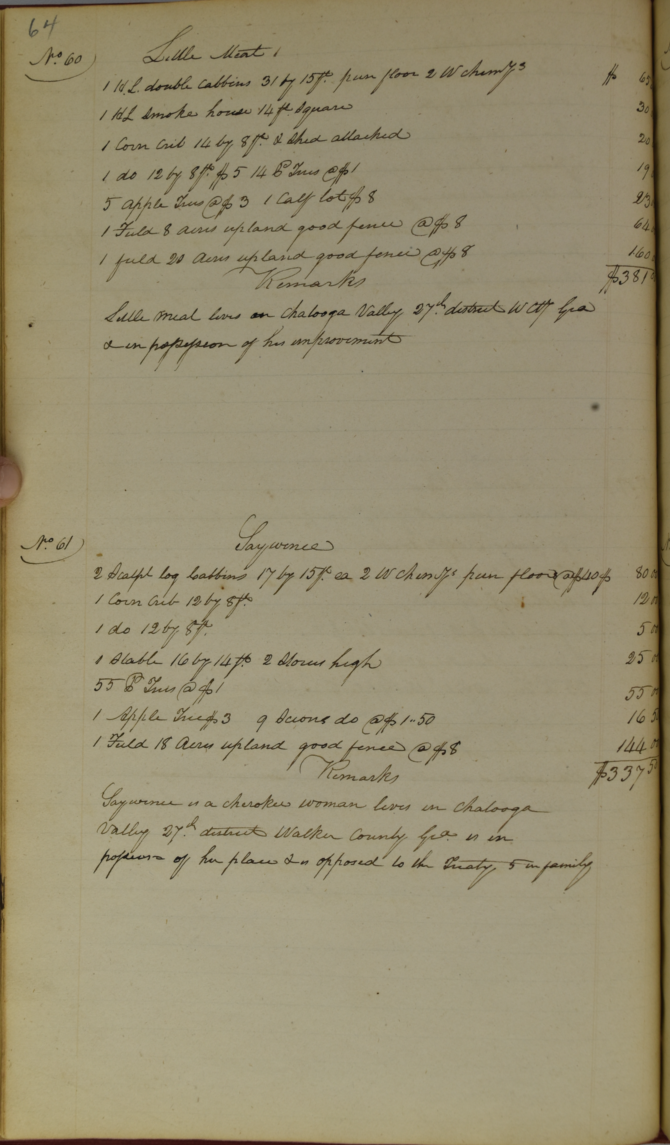 64
No. 60 Little Meat
1 H.L. double Cabbins 31 by 15 ft. pun floor 2 W chimys $ 65
1 HL Smoke house 14 ft. Square 30
1 Corn Crib 14 by 8 ft. & Shed attached 20
1 do 12 by 8 ft. $5 14 P Trees @ $1 19
5 Apple Trees @ $3 1 Calf lot $8 23
1 Field 8 Acres upland good fence @ $8 64
1 field 20 Acres upland good fence @ $8 160
Remarks $381
Little Meat lives on Chatooga Valley 27th district W Cty Geo
& in possession of his improvement
No. 61 Saywinee
2 Scalpt log Cabbins 17 by 15 ft. ea 2 W chimys pun floor @ $40 $ 80 00
1 Corn Crib 12 by 8 ft. 12 00
1 do 12 by 8 ft. 5 00
1 Stable 16 by 14 ft. 2 Stories high 25 00
55 P Trees @ $1 55 00
1 Apple Tree $3 9 Scions do @ $1-50 16 50
1 Field 18 Acres upland good fence @ $8 144 00
Remarks $337 50
Saywinee is a cherokee woman lives in Chatooga
Valley 27th district Walker County Geo. is in
possess- of her place & is opposed to the Treaty 5 in family